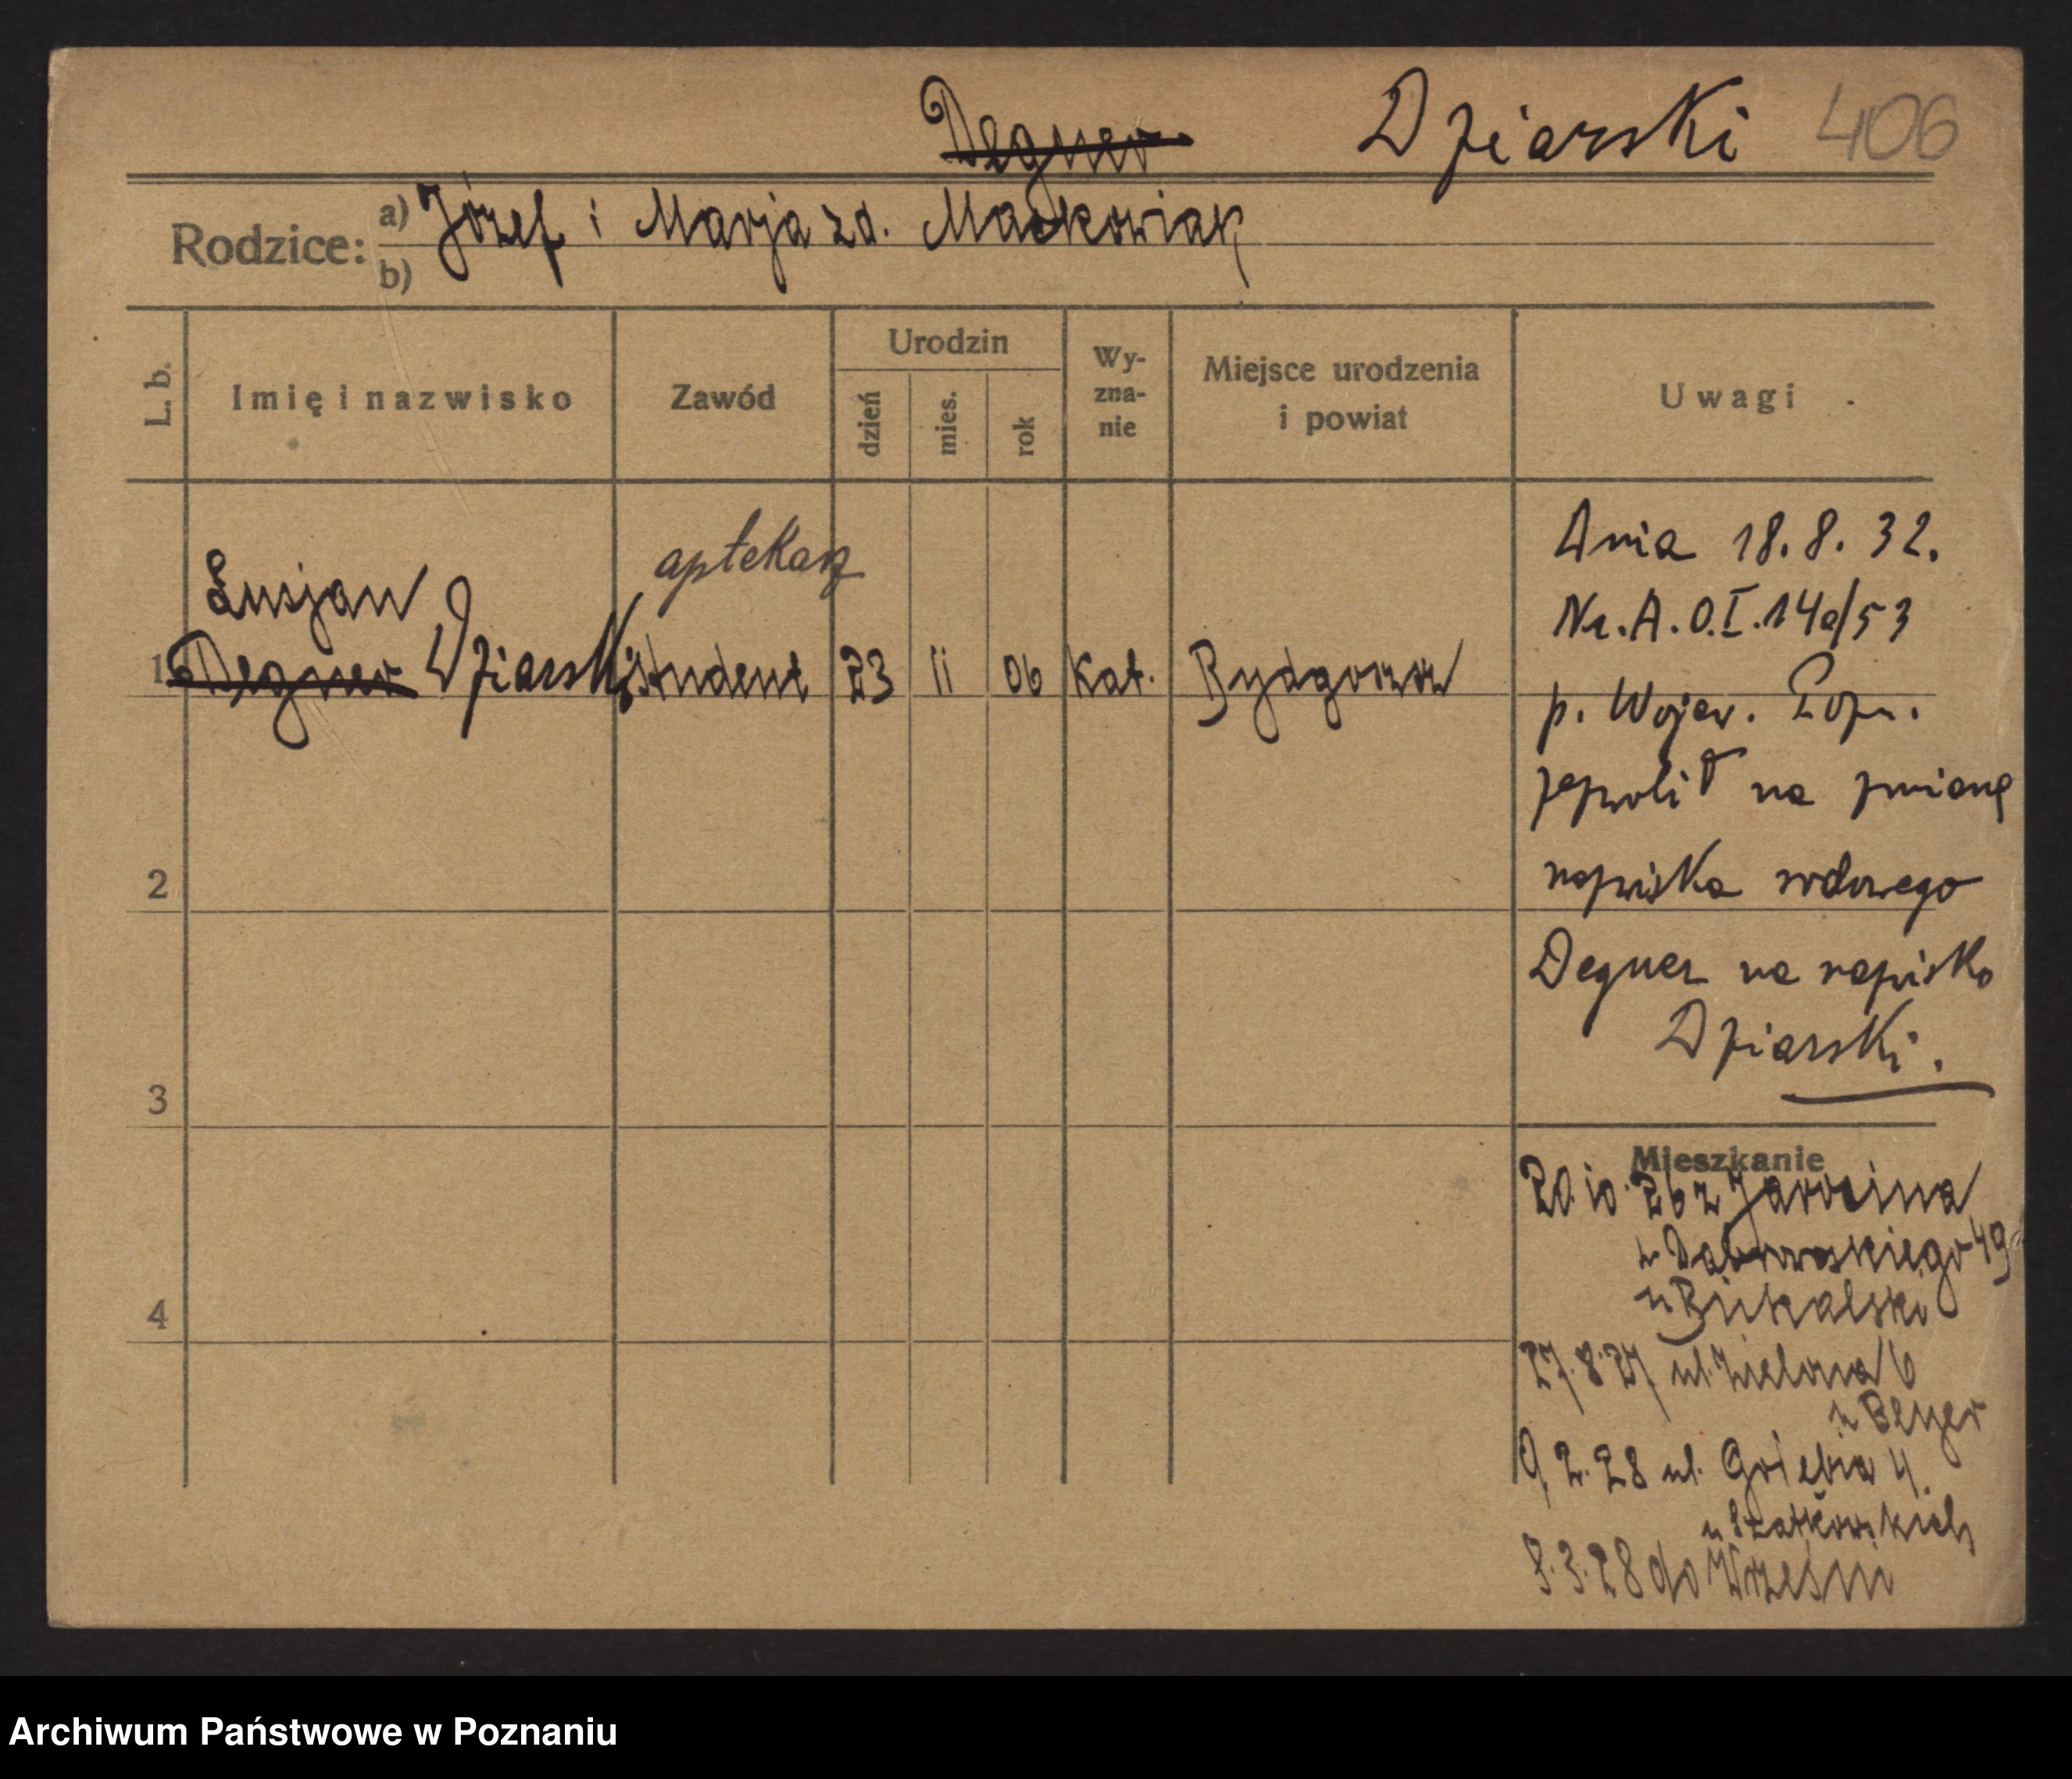 Degner Dziarski 406
Rodzice: a) Józef i Marja zd. Maćkowiak
b)
L. b. Imię i nazwisko Zawód Urodzin dzień mies. rok Wy-zna-nie Miejsce urodzenia i powiat Uwagi
aptekarz
Lucjan
1 Degner Dziarski student 23 11 06 kat. Bydgoszcz
Dnia 18.8.32.
Nr. A.O.I.14a/53
p. Wojew. Pozn.
zezwolił na zmianę
nazwiska rodowego
Degner na nazwisko
Dziarski.
2
3
4
Mieszkanie
20.10.26 z Jarocina
Dąbrowskiego 49
u
27.8.27 ul. Zielona 6
u Beyer
9.2.28 ul. 4.
u Szatkowskich
3.28 do Wrześni
Archiwum Państwowe w Poznaniu